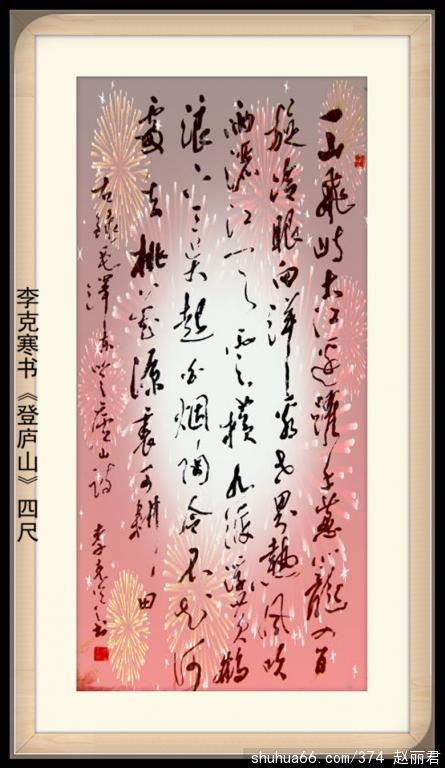 一山飛峙大江边躍上葱龍四百
旋冷眼向洋看世界熱风吹
雨灑江天雲横九派浮黄鹤
浪下三吴起白烟陶令不知何
處去桃花源裏可耕田
毛澤东登廬山詩 李克寒书
李克寒书《登庐山》四尺
shuhua66.com/374 赵丽君